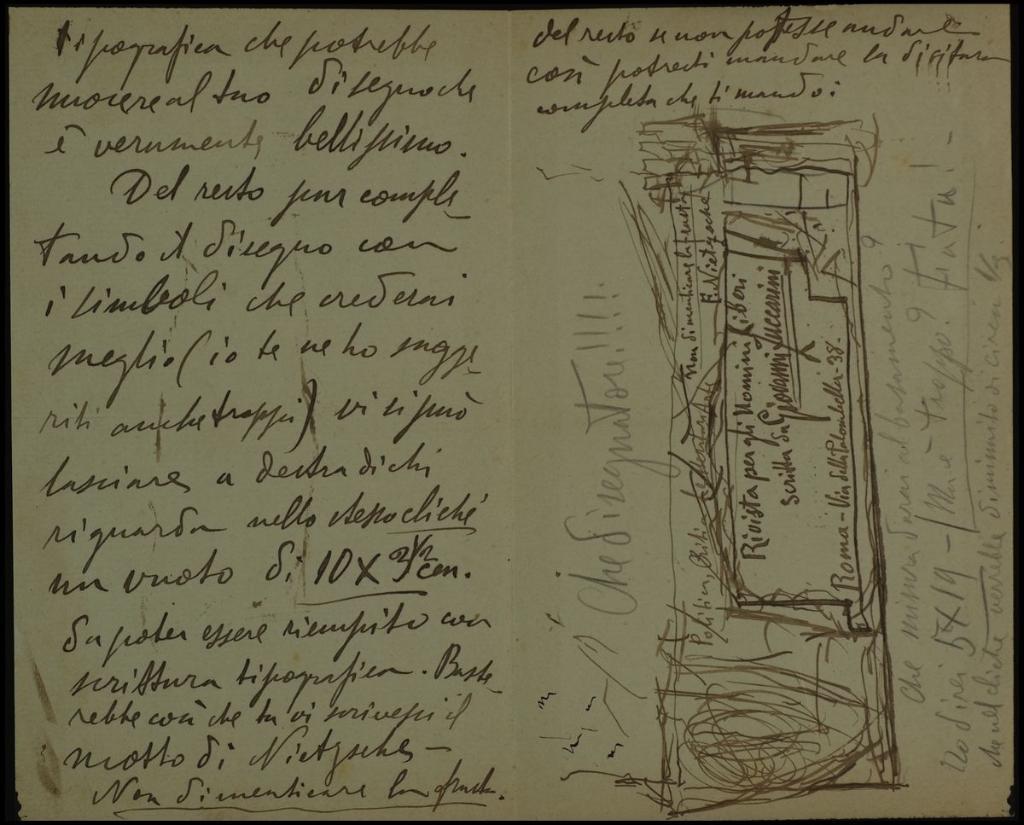 tipografica che potrebbe
nuocere al tuo disegno che
è veramente bellissimo.
Del resto pur comple_
tando il disegno con
i simboli che crederai
meglio (io te ne ho sugge_
riti anche troppi) vi si può
lasciare a destra di chi
riguarda nello stesso cliché
un vuoto di 10 X 3 1/2 cen.
da poter essere riempito con
scrittura tipografica. Baste_
rebbe così che tu vi scrivessi il
motto di Nietzsche –
Non dimenticare la frusta.
del resto se non potesse andare
così potresti mandare la dicitura
completa che ti mando:
Che disegnatore!!!!
Non dimenticare la frusta
F. Nietzsche
Politica,
Rivista per gli Uomini Liberi
scritta da Giovanni
Roma – Via della Palombella – 38.
Che misura darai al basamento?
Io direi 5X19 – (Ma è troppo? Fi at tu! –